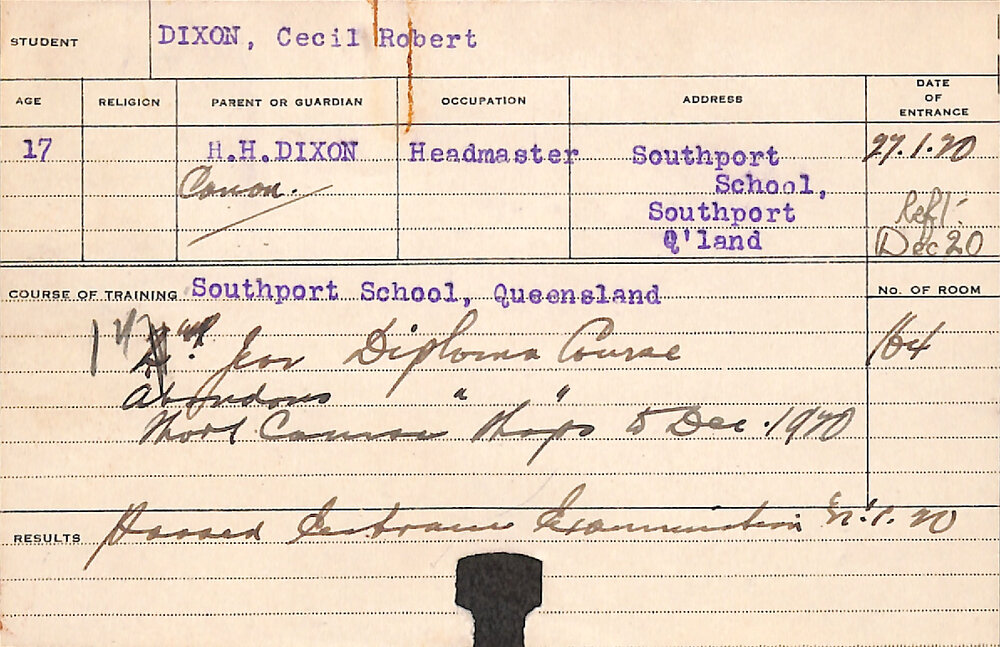 STUDENT DIXON, Cecil Robert
AGE RELIGION PARENT OR GUARDIAN OCCUPATION ADDRESS DATE OF ENTRANCE
17 H.H.DIXON Headmaster Southport 27.1.20
Canon. School,
Southport Left
Q'land Dec 20
COURSE OF TRAINING Southport School, Queensland No. OF ROOM
Year Diploma Course 164
Abandons " "
Short Course Shops to Dec. 1920
RESULTS Passed Entrance Examination 1.20